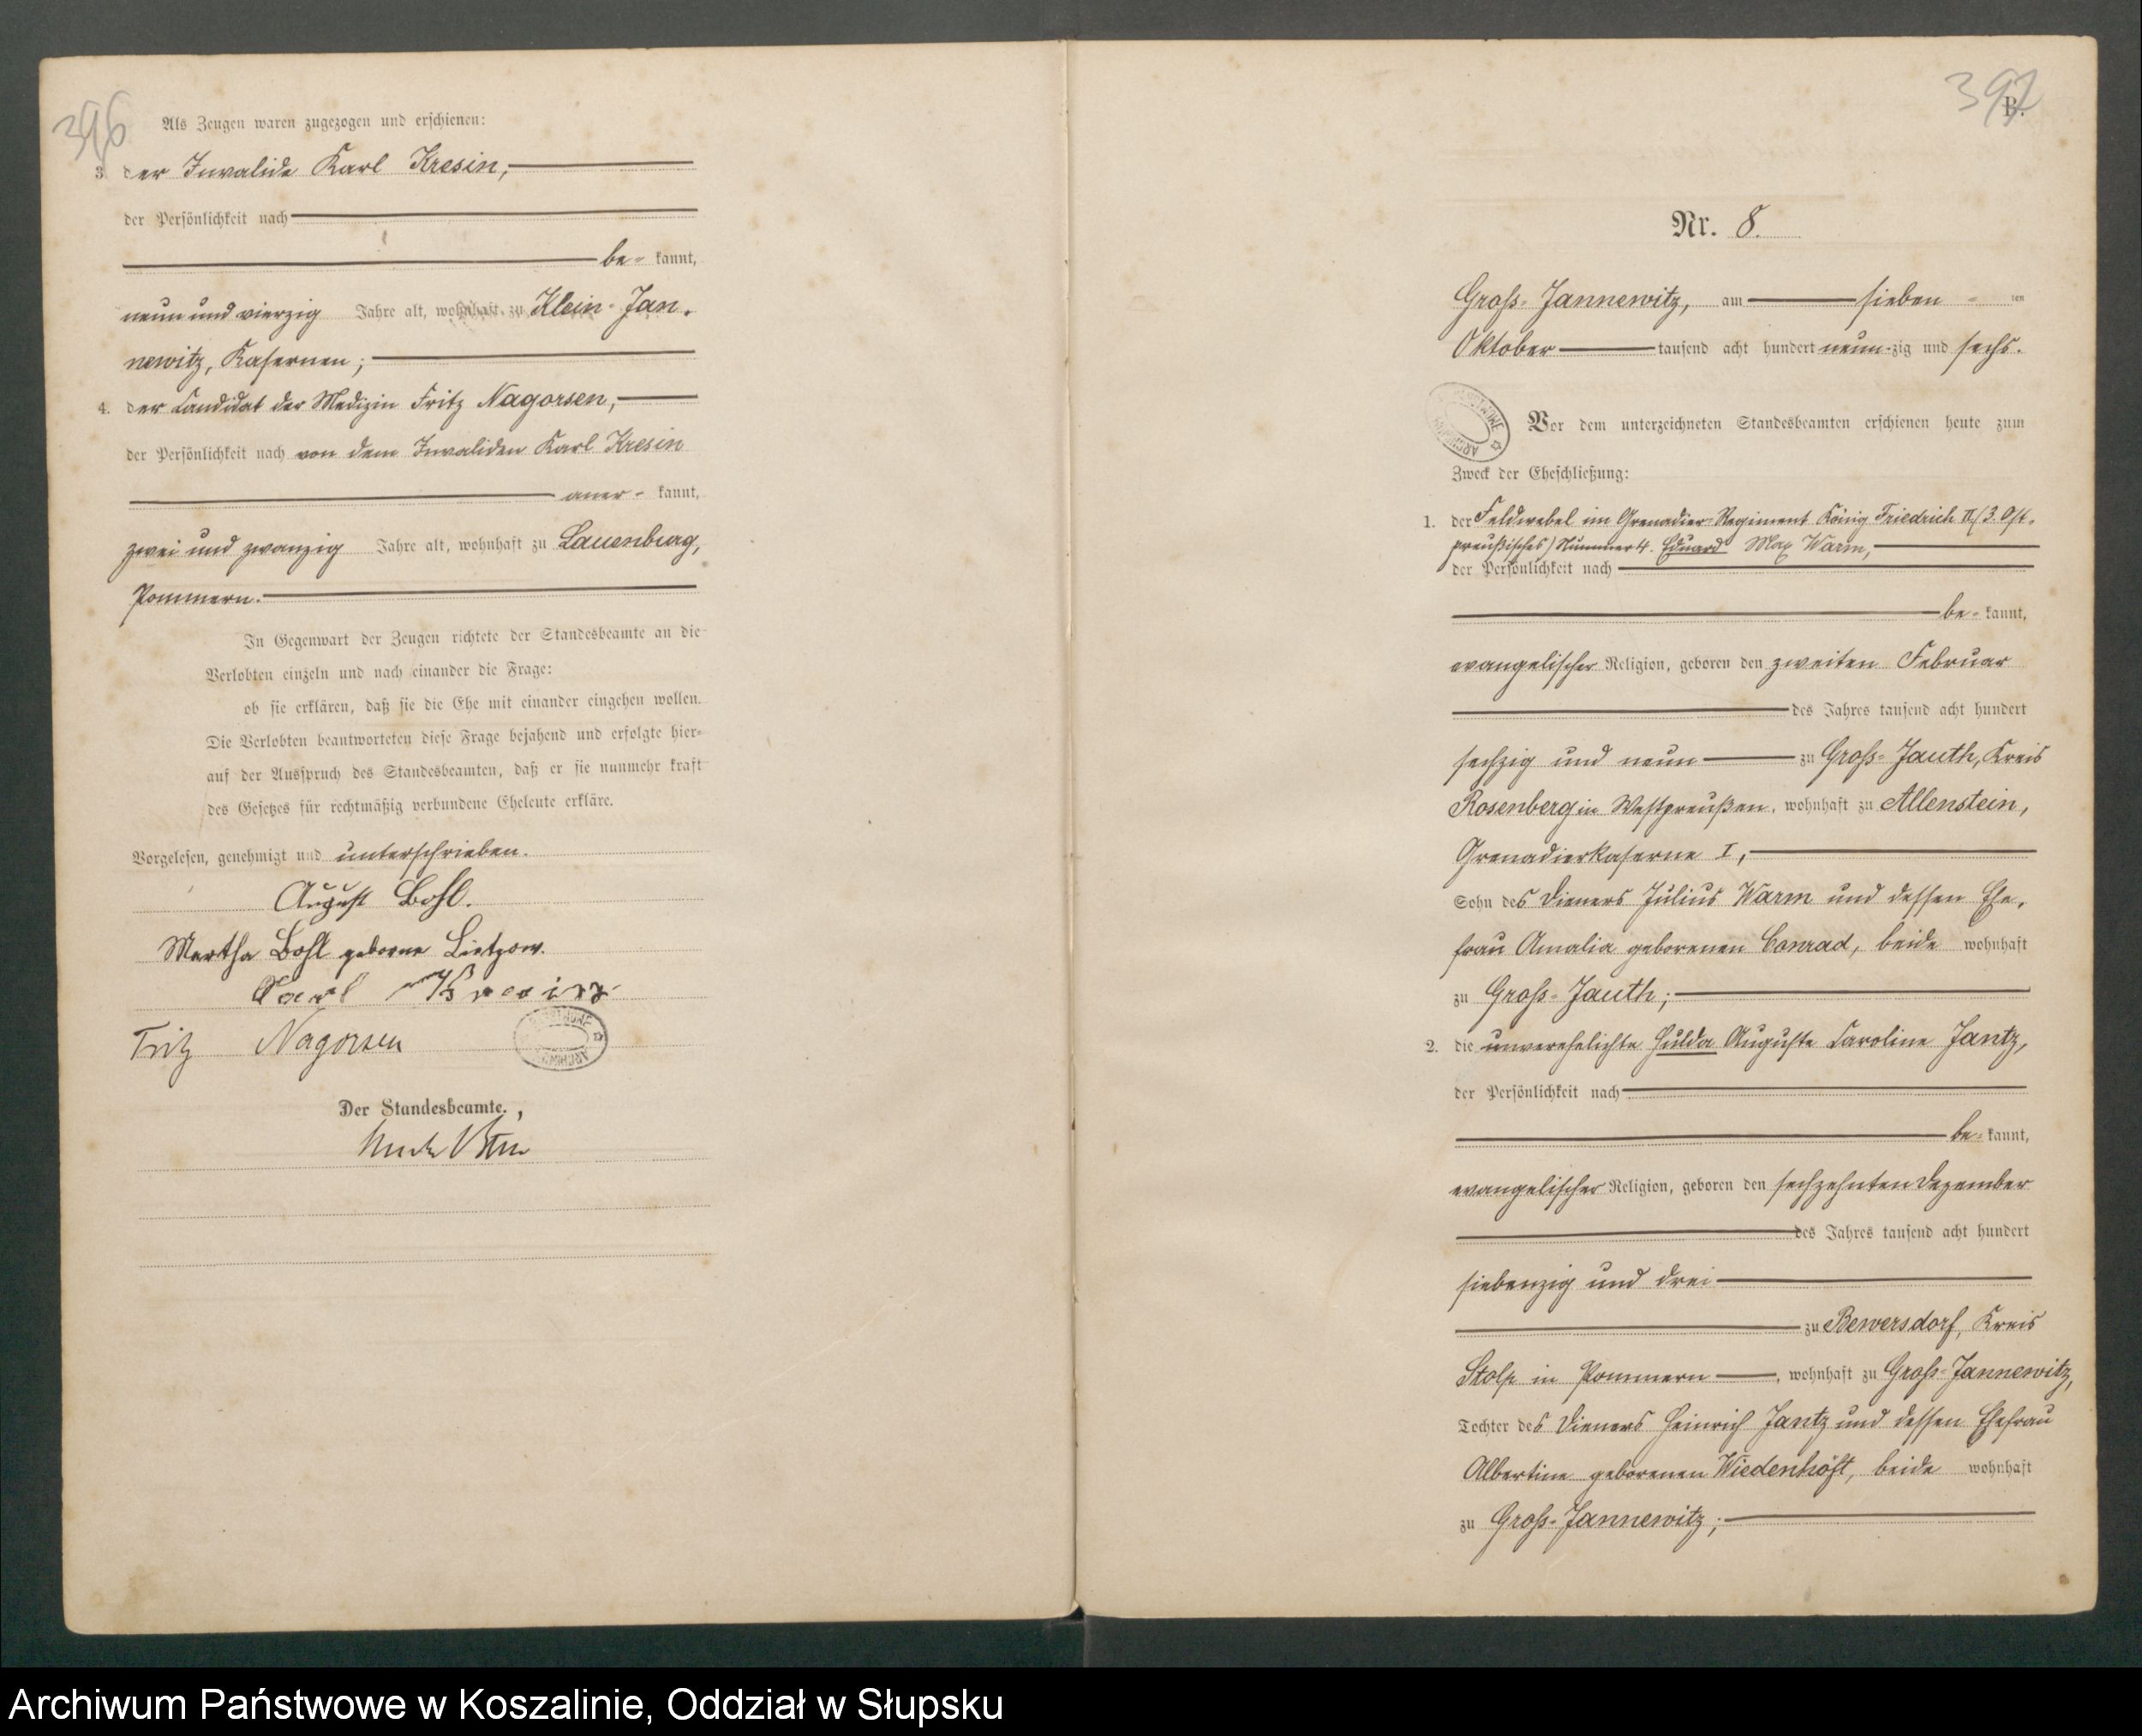 396
Als Zeugen waren zugezogen und erschienen:
3. der Invalide Karl Kresin,
der Persönlichkeit nach
be- kannt,
neun und vierzig Jahre alt, wohnhaft zu Klein-Jan-
newitz, Kasernen;
4. der Candidat der Medizin Fritz Nagorsen,
der Persönlichkeit nach von dem Invaliden Karl Kresin
aner- kannt,
zwei und zwanzig Jahre alt, wohnhaft zu Lauenburg,
Pommern.
In Gegenwart der Zeugen richtete der Standesbeamte an die
Verlobten einzeln und nach einander die Frage:
ob sie erklären, daß sie die Ehe mit einander eingehen wollen.
Die Verlobten beantworteten diese Frage bejahend und erfolgte hier-
auf der Ausspruch des Standesbeamten, daß er sie nunmehr kraft
des Gesetzes für rechtmäßig verbundene Eheleute erkläre.
Vorgelesen, genehmigt und unterschrieben.
August Bohl.
Martha Bohl geborne Lietzow.
Carl Kresin
Fritz Nagorsen
Der Standesbeamte.
397
B.
Nr. 8.
Gross-Jannewitz, am sieben ten
Oktober tausend acht hundert neun-zig und sechs.
Vor dem unterzeichneten Standesbeamten erschienen heute zum
Zweck der Eheschließung:
1. der Feldwebel im Grenadier-Regiment König Friedrich II (3. Ost-
preußisches) Nummer 4. Eduard Max Warm,
der Persönlichkeit nach
be- kannt,
evangelischer Religion, geboren den zweiten Februar
des Jahres tausend acht hundert
sechzig und neun zu Gross-Jauth, Kreis
Rosenberg in Westpreußen, wohnhaft zu Allenstein,
Grenadierkaserne I,
Sohn des Dieners Julius Warm und dessen Ehe-
frau Amalia geborenen Conrad, beide wohnhaft
zu Gross-Jauth;
2. die unverehelichte Hulda Auguste Caroline Jantz,
der Persönlichkeit nach
be- kannt,
evangelischer Religion, geboren den sechzehnten Dezember
des Jahres tausend acht hundert
siebenzig und drei
zu Bewersdorf, Kreis
Stolp in Pommern, wohnhaft zu Gross-Jannewitz,
Tochter des Dieners Heinrich Jantz und dessen Ehefrau
Albertine geborenen Wiedenhöft, beide wohnhaft
zu Gross-Jannewitz;
Archiwum Państwowe w Koszalinie, Oddział w Słupsku